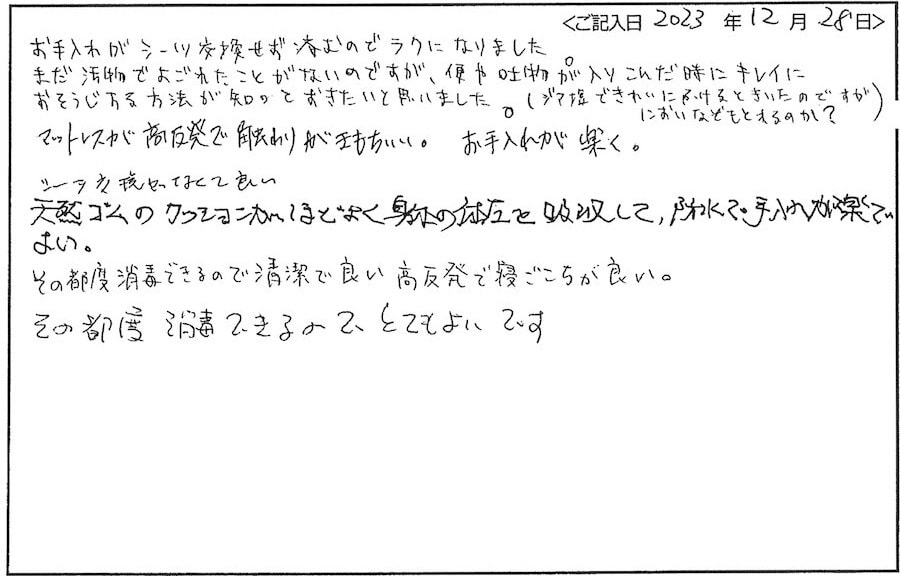 <ご記入日 2023 年 12 月 28日>
お手入れがシーツ交換せず済むのでラクになりました。
まだ汚物でよごれたことがないのですが、便や吐物が入りこんだ時にキレイに
おそうじする方法が知っておきたいと思いました。(ジア塩できれいにふけるときいたのですが
においなどもとれるのか?)
マットレスが高反発で触わりがきもちいい。 お手入れが楽く。
シーツ交換やらなくて良い
天然ゴムのクッション力がほどよく身体の体圧を吸収して、防水で手入れが楽でい
よい。
その都度消毒できるので清潔で良い 高反発で寝ごこちが良い。
その都度 消毒できるので、とてもよいです